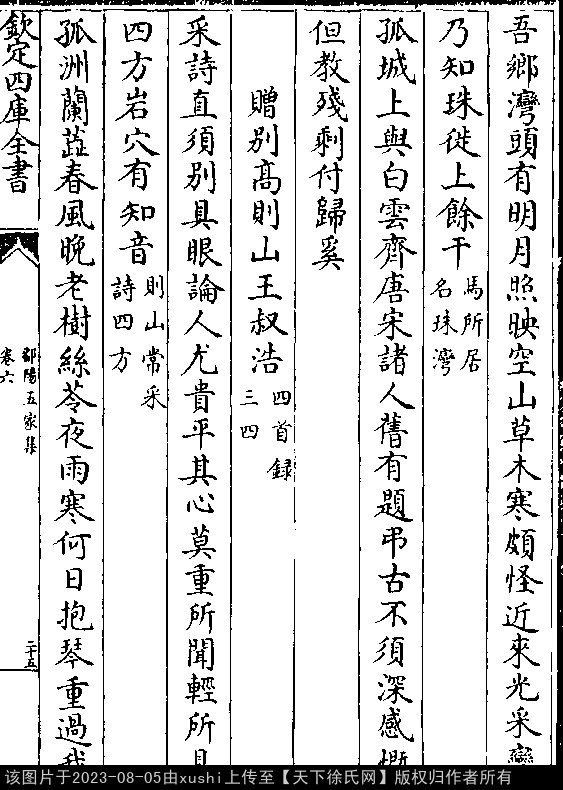 吾鄉灣頭有明月照映空山草木寒頗怪近來光采
乃知珠徙上餘干
馬所居
名珠灣
孤城上與白雲齊唐宋諸人舊有題弔古不須深感慨
但教殘剩付歸奚
贈别髙則山王叔浩
四首録
三四
采詩直須别具眼論人尤貴平其心莫重所聞輕所見
四方岩穴有知音
則山常采
詩四方
孤洲蘭蕋春風晚老樹絲苓夜雨寒何日抱琴重過我
欽定四庫全書
鄱陽五家集
卷六
二十五
该图片于2023-08-05由xushi上传至【天下徐氏网】版权归作者所有